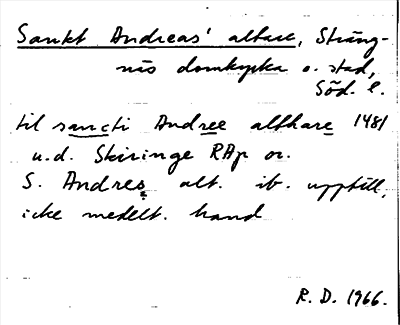 Sankt Andreas' altare, Sträng-
näs domkyrka o. stad,
Söd. l.
til sancti Andree althare 1481
u.d. Skiringe RAp or.
S. Andres alt. ib. upptill,
icke medelt. hand
R. D. 1966.